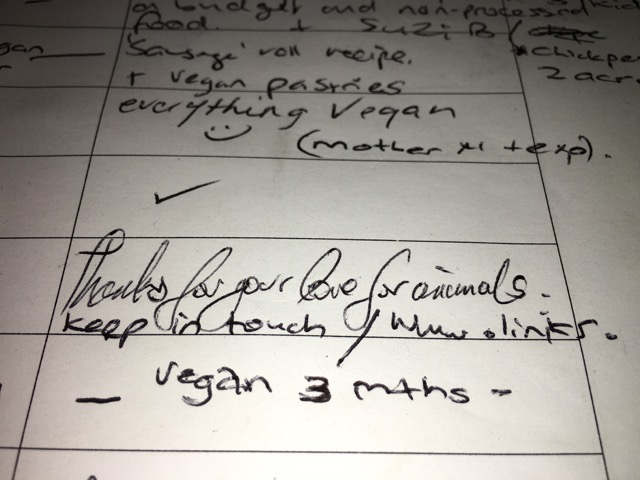 on budget and non-processed
food. + Suzi B /
'Sausage' roll recipe. *chickpe
+ vegan pastries 2 acr
everything Vegan
(mother x1 + exp).
Thanks for your love for animals.
keep in touch / www.links.
— vegan 3 mths -